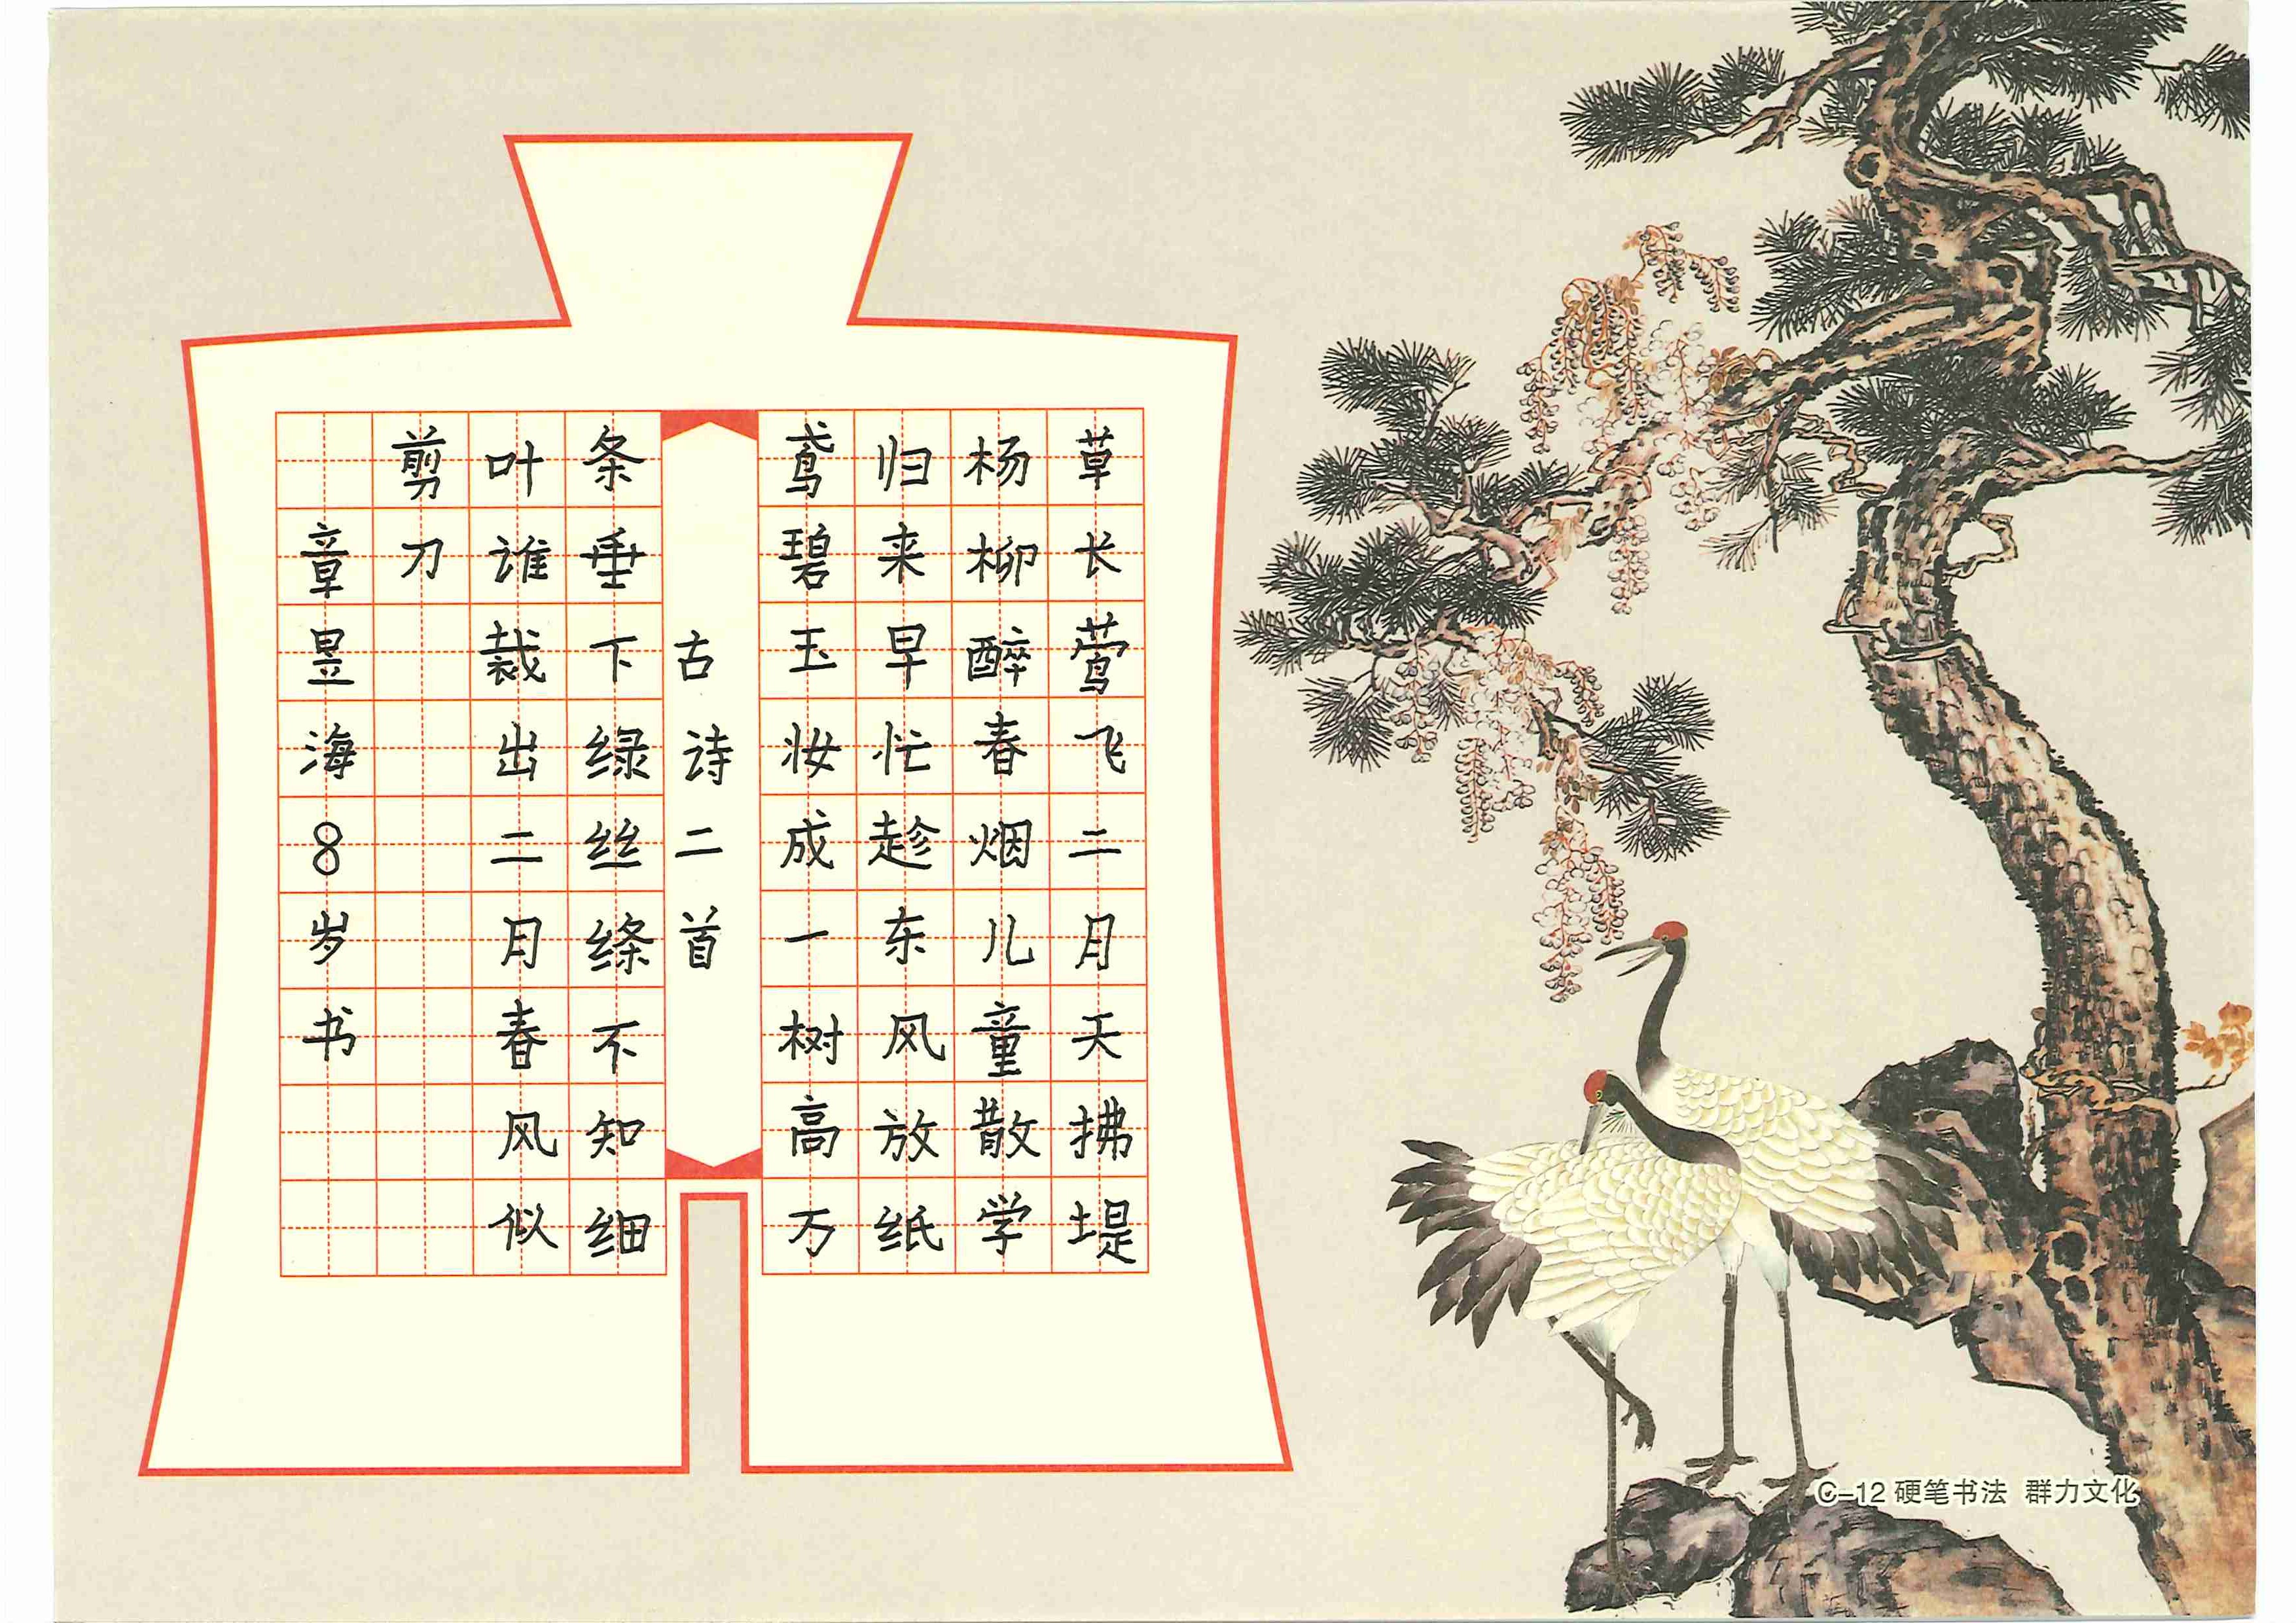 草长莺飞二月天拂堤
杨柳醉春烟儿童散学
归来早忙趁东风放纸
鸢碧玉妆成一树高万
古诗二首
条垂下绿丝绦不知细
叶谁裁出二月春风似
剪刀
章昱海8岁书
C-12 硬笔书法 群力文化